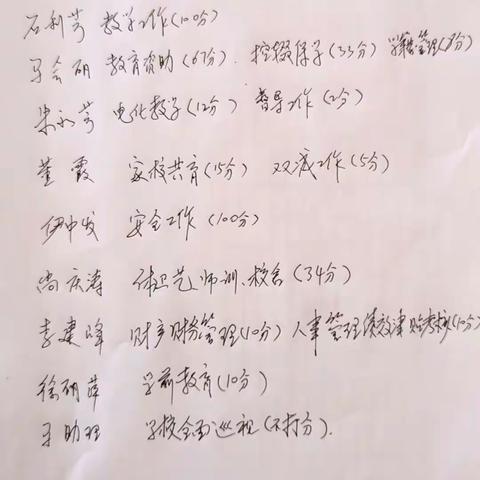 石利芳 教学工作(100分)
王会研 教育资助(67分). 控辍保学(33分) 学籍管理(8分)
朱永芳 电化教学(12分) 督导工作(2分)
董霞 家校共育(15分) 双减工作(5分)
伊中发 安全工作(100分)
尚庆涛 体卫艺、师训、校舍(34分)
李建峰 财产财务管理(10分) 人事管理绩效津贴考核(10分)
徐研萍 学前教育(10分)
王助理 学校全面巡视(不打分).